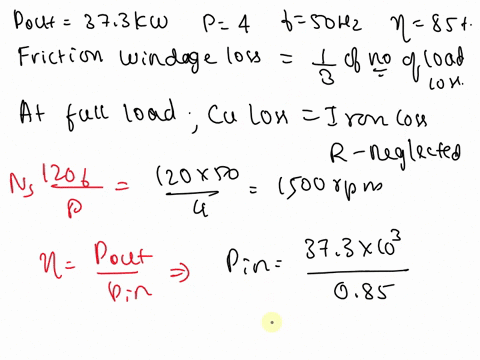 Pout = 37.3kw P=4 f=50Hz η=85%.
Friction windage loss = 1/3 of no of load loss.
At full load ; Cu loss = Iron loss
R-neglected
Ns 120f/P = 120×50/4 = 1500 rpm
η = Pout/Pin ⇒ Pin = 37.3×10³/0.85